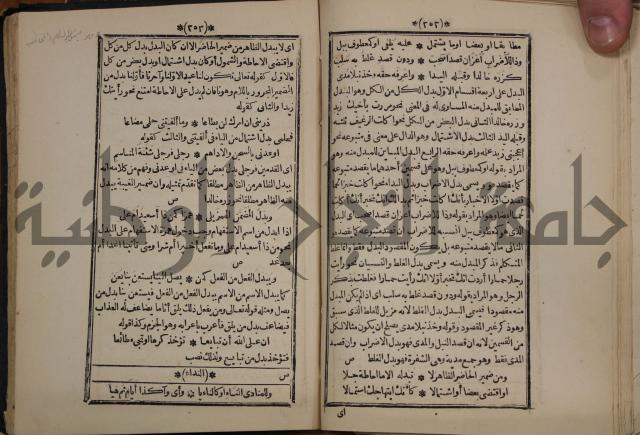 *(٢٥٢)*
مطابقا أو بعضا أو ما يشتمل * عليه يلفى أو كمعطوف ببل
وذا للاضراب اعزان قصدا صحب * ودون قصد غلط به سلب
كزره خالدا وقبله اليدا * واعرفه حقه وخذ نبلا مدى
البدل على أربعة أقسام الاول بدل الكل من الكل وهو البدل
المطابق للمبدل منه المساوى له فى المعنى نحو مررت بأخيك زيد
وزره خالدا الثانى بدل البعض من الكل نحو أكلت الرغيف ثلثه
وقبله اليد الثالث بدل الاشتمال وهو الدال على معنى فى متبوعه نحو
أعجبنى زيد علمه واعرفه حقه الرابع البدل المباين للمبدل منه وهو
المراد بقوله أو كمعطوف ببل وهو على قسمين أحدهما ما يقصد متبوعه
كما يقصد هو ويسمى بدل الاضراب وبدل البداء نحو أكلت خبزا لحما
قصدت أولا الاخبار بأنك أكلت خبزا ثم بدا لك أنك تخبر أنك أكلت
لحما أيضا وهو المراد بقوله وذا للاضراب اعزان قصدا صحب أى البدل
الذى هو كمعطوف ببل انسبه للاضراب ان قصد متبوعه كما يقصد
الثانى مالا يقصد متبوعه بل يكون المقصود البدل فقط وانما غلط
المتكلم فذكر المبدل منه ويسمى بدل الغلط والنسيان نحو رأيت
رجلا حمارا أردت أنك تخبر أولا أنك رأيت حمارا فغلطت بذكر
الرجل وهو المراد بقوله ودون قصد غلط به سلب أى اذا لم يكن المبدل
منه مقصودا فيسمى البدل بدل الغلط لانه مزيل للغلط الذى سبق
وهو ذكر غير المقصود وقوله وخذ نبلا مدى يصلح أن يكون مثالا لكل
من القسمين لانه ان قصد النبل والمدى فهو بدل الاضراب وان قصد
المدى فقط وهو جمع مدية وهى الشفرة فهو بدل الغلط ص
ومن ضمير الحاضر الظاهر لا * تبدله الا ما احاطة جلا
أو اقتضى بعضا أو اشتمالا * كأنك ابتهاجك استمالا
اى
*(٢٥٣)*
اى لا يبدل الظاهر من ضمير الحاضر الا ان كان البدل بدل كل من كل
واقتضى الاحاطة والشمول أو كان بدل اشتمال او بدل بعض من كل
فالاول كقوله تعالى تكون لنا عيدا لاولنا وآخرنا فأولنا بدل من
الضمير المجرور باللام وهو نا فان لم يدل على الاحاطة امتنع نحو رأيتك
زيدا والثانى كقوله
ذرينى ان امرك لن يطاعا * وما ألفيتنى حلمى مضاعا
فحلمى بدل اشتمال من الياء فى ألفيتنى والثالث كقوله
أوعدنى بالسجن والاداهم * رجلى فرجلى شثنة المناسم
فرجلى بدل بعض من الياء فى اوعدنى وفهم من كلامه انه
يبدل الظاهر من الظاهر مطلقا كما تقدم تمثيله وان ضمير الغيبة يبدل
منه الظاهر مطلقا نحو زره خالدا
ص
وبدل المضمن الهمز يلى * همزا كمن ذا أسعيد أم على
اذا ابدل من اسم الاستفهام وجب دخول همزة الاستفهام على البدل
نحو من ذا أسعيد أم على وما تفعل أخيرا أم شرا ومتى تأتينا أغدا أم
بعد غد ص
ويبدل الفعل من الفعل كمن * يصل الينا يستعن بنا يعن
كما يبدل الاسم من الاسم يبدل الفعل من الفعل فيستعن بنا بدل من
يصل ومثله قوله تعالى ومن يفعل ذلك يلق أثاما يضاعف له العذاب
فيضاعف بدل من يلق فأعرب باعرابه وهو الجزم وكذا قوله
ان على الله أن تبايعا * تؤخذ كرها أو تجى طائعا
فتؤخذ بدل من تبايع ولذلك نصب
ص *(النداء)*
وللمنادى الناء أو كالناء يا * وأى وآ كذا أيا ثم هيا
جامعة الوطنية